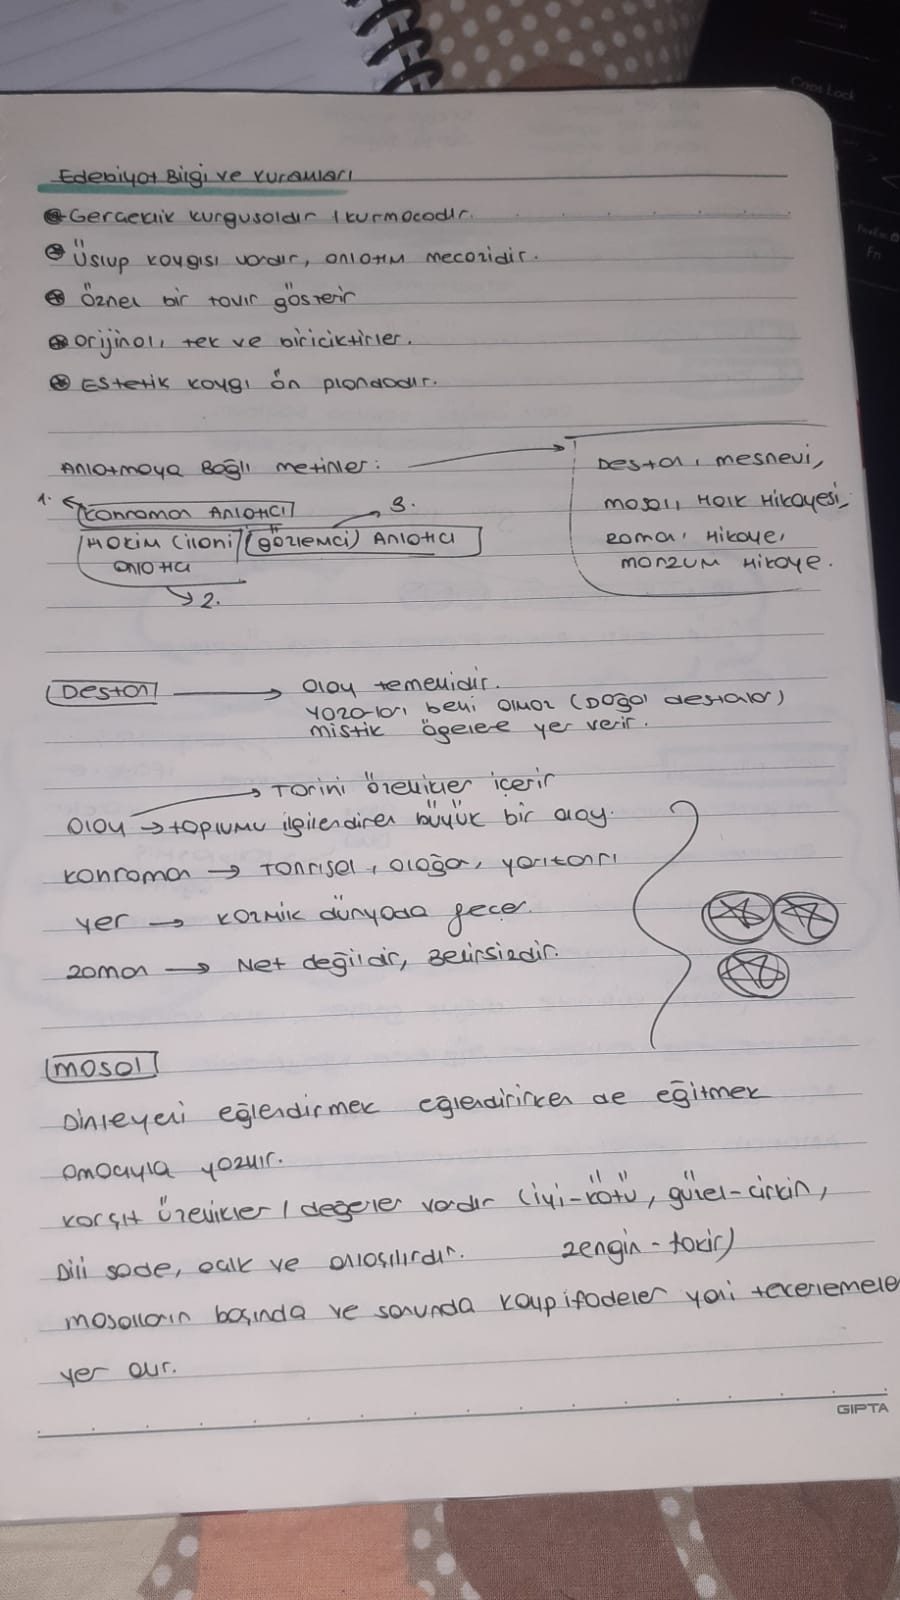 Edebiyat Bilgi ve Kuramları
Gerçeklik kurgusaldır / kurmacadır.
Üslup kaygısı vardır, anlatım mecazidir.
Öznel bir tavır gösterir
orijinal, tek ve biriciktirler.
Estetik kaygı ön plandadır.
Anlatmaya Bağlı metinler:
Destan, mesnevi,
masal, Halk Hikayesi,
Roman, Hikaye,
manzum Hikaye.
1.
Kahraman Anlatıcı
3.
Hakim (ilahi) (gözlemci) Anlatıcı
anlatıcı
2.
Destan
Olay temellidir.
yazarları belli olmaz (Doğal destanlar)
mistik ögelere yer verir.
Tarihi özellikler içerir
Olay → toplumu ilgilendiren büyük bir olay.
Kahraman → Tanrısal, olağan, yarıtanrı
yer → kozmik dünyada geçer.
zaman → Net değildir, Belirsizdir.
masal
Dinleyeni eğlendirmek eğlendirirken de eğitmek
amacıyla yazılır.
karşıt özellikler / değerler vardır (iyi-kötü, güzel-çirkin,
zengin - fakir)
Dili sade, açık ve anlaşılırdır.
masalların başında ve sonunda kalıp ifadeler yani tekerlemeler
yer alır.
GIPTA
Caps Lock
Fn